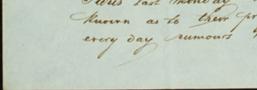 last Monday
known as to their
every day rumours